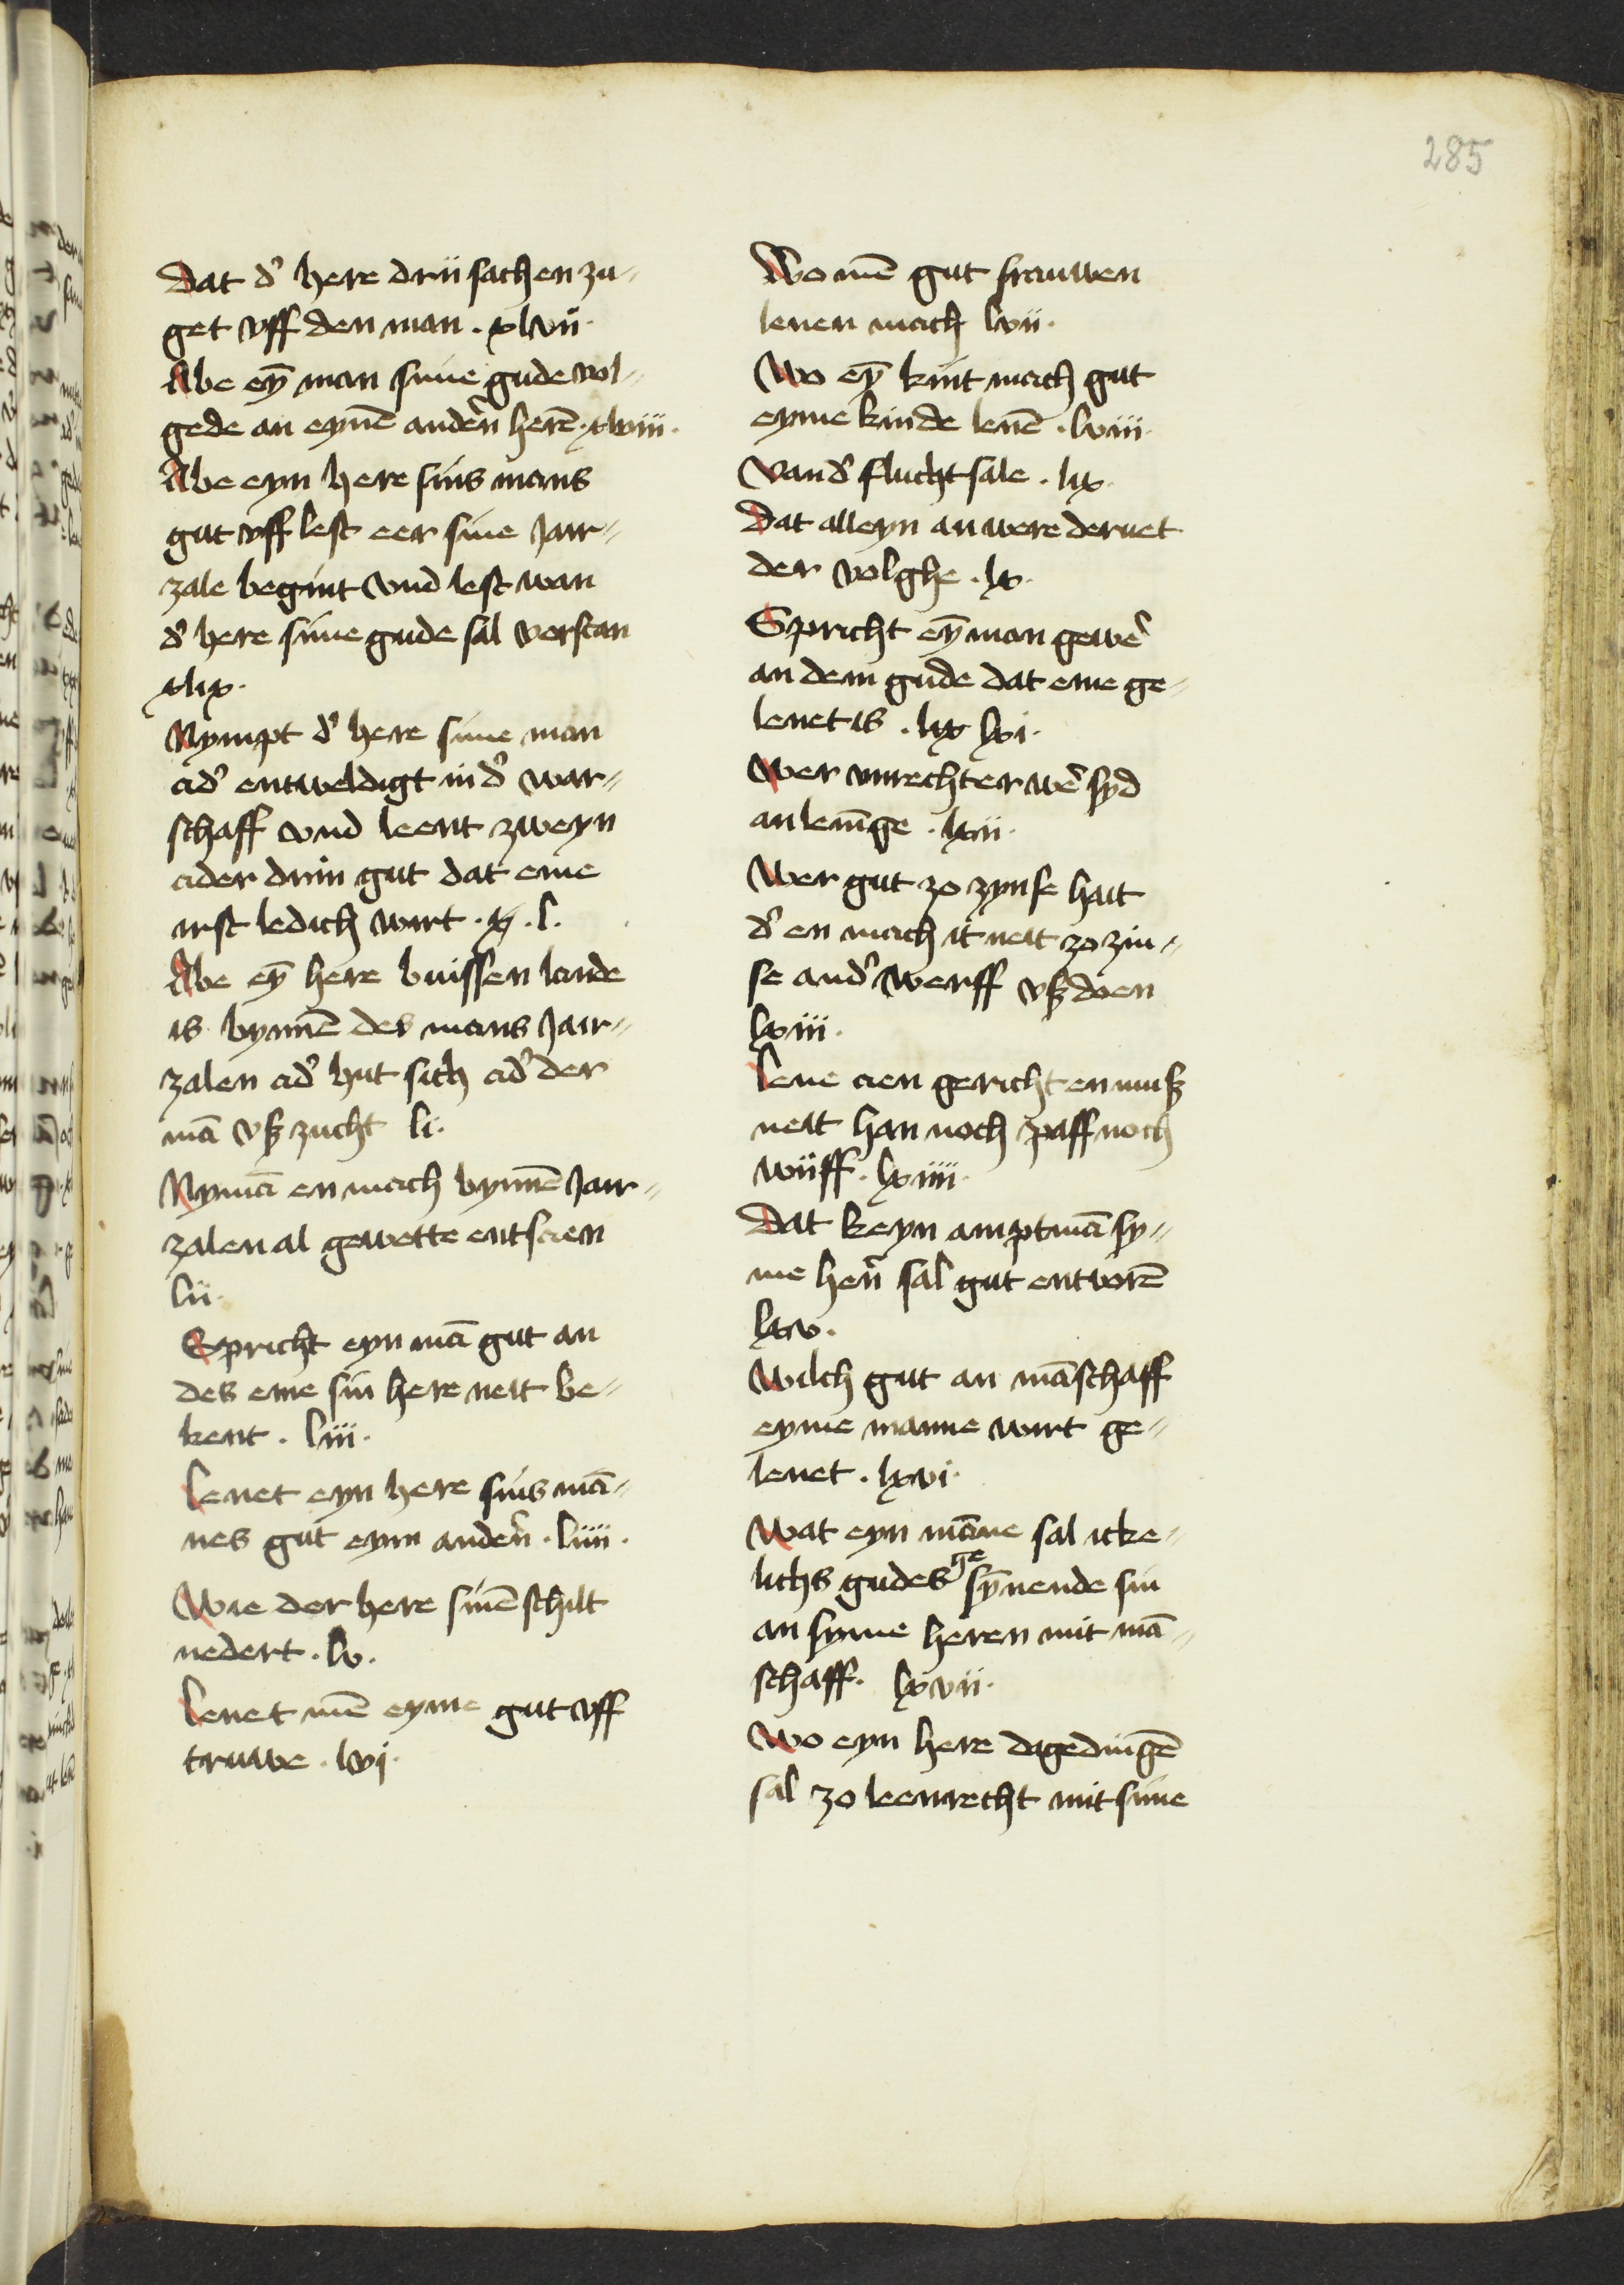 285
Dat d' here drii sachen zu-
get vff den man . xlvii.
Abe ey̅ man sine gude vol-
gede an eyne̅ ander̅n here̅ . xlviii.
Abe eyn here sins mans
gut vff lest eer sine Jair-
zale begint vnd lest wan
d' here sime gude sal verstan
xlix.
Nympt d' here sime man
ad' entweldigt in d' war-
schaff vnd leent zweyn
ader drin gut dat eme
irst ledich wirt . l.
Abe ey̅ here buissen lande
is bynne̅ des mans Jair-
zalen ad' hut sich ad' der
ma̅ vß zucht li.
Nyma̅ en mach bynne̅ Jair-
zalen al gewette entsaen
lii.
Spricht eyn ma̅ gut an
des eme sin here neit be-
kent . liii.
Lenet eyn here sins ma̅-
nes gut eym ander̅n . liiii.
Wie der here sine̅ schilt
nedert . lv.
Lenet me̅ eyme gut vff
truwe . lvi.
Wo me̅ gut frauwen
lenen mach lvii.
Wo ey̅ kint mach gut
eyme kinde lene̅ . lviii.
Van d' fluchtsale . lix.
Dat alleyn an were deruet
der volghe . lx.
Spricht ey̅ man gewe'
an dem gude dat eme ge-
lenet is . lix lxi.
Wer vnrechter we' syd
an leni̅ge . lxii.
Wer gut zo zynse hait
d' en mach it neit zo zin-
se and'werff vß doen
lxiii.
Lene aen gericht en muß
neit han noch paff noch
wiiff . lxiiii.
Dat keyn amptma̅ sy-
me her̅n sal gut entvore̅
lxv.
Wilch gut an ma̅schaff
eyme manne wirt ge-
lenet . lxvi.
Wat eyn ma̅ne sal icke-
lichs gudes ge sy̅nende sin
an syme heren mit ma̅-
schaff . lxvii.
Wo eyn here dagedinge̅
sal zo leenrecht mit sime